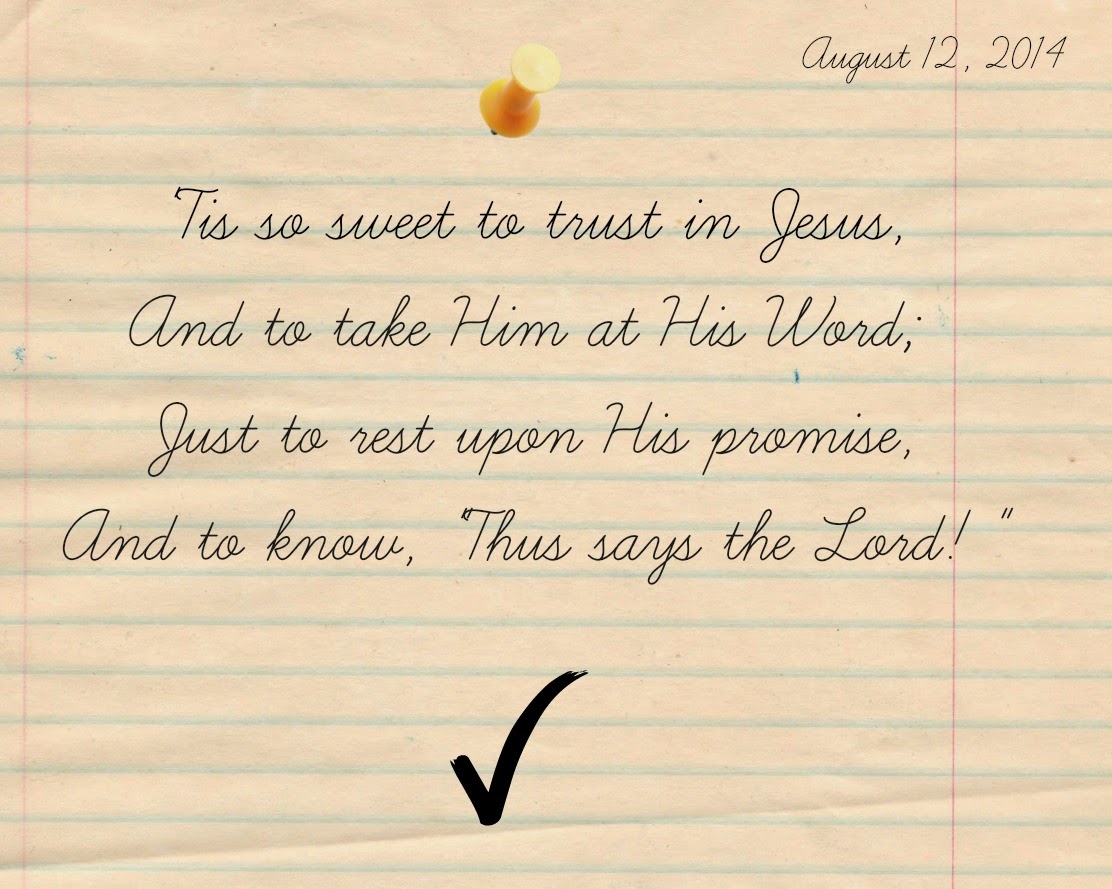 August 12, 2014
'Tis so sweet to trust in Jesus,
And to take Him at His Word;
Just to rest upon His promise,
And to know, "Thus says the Lord! "